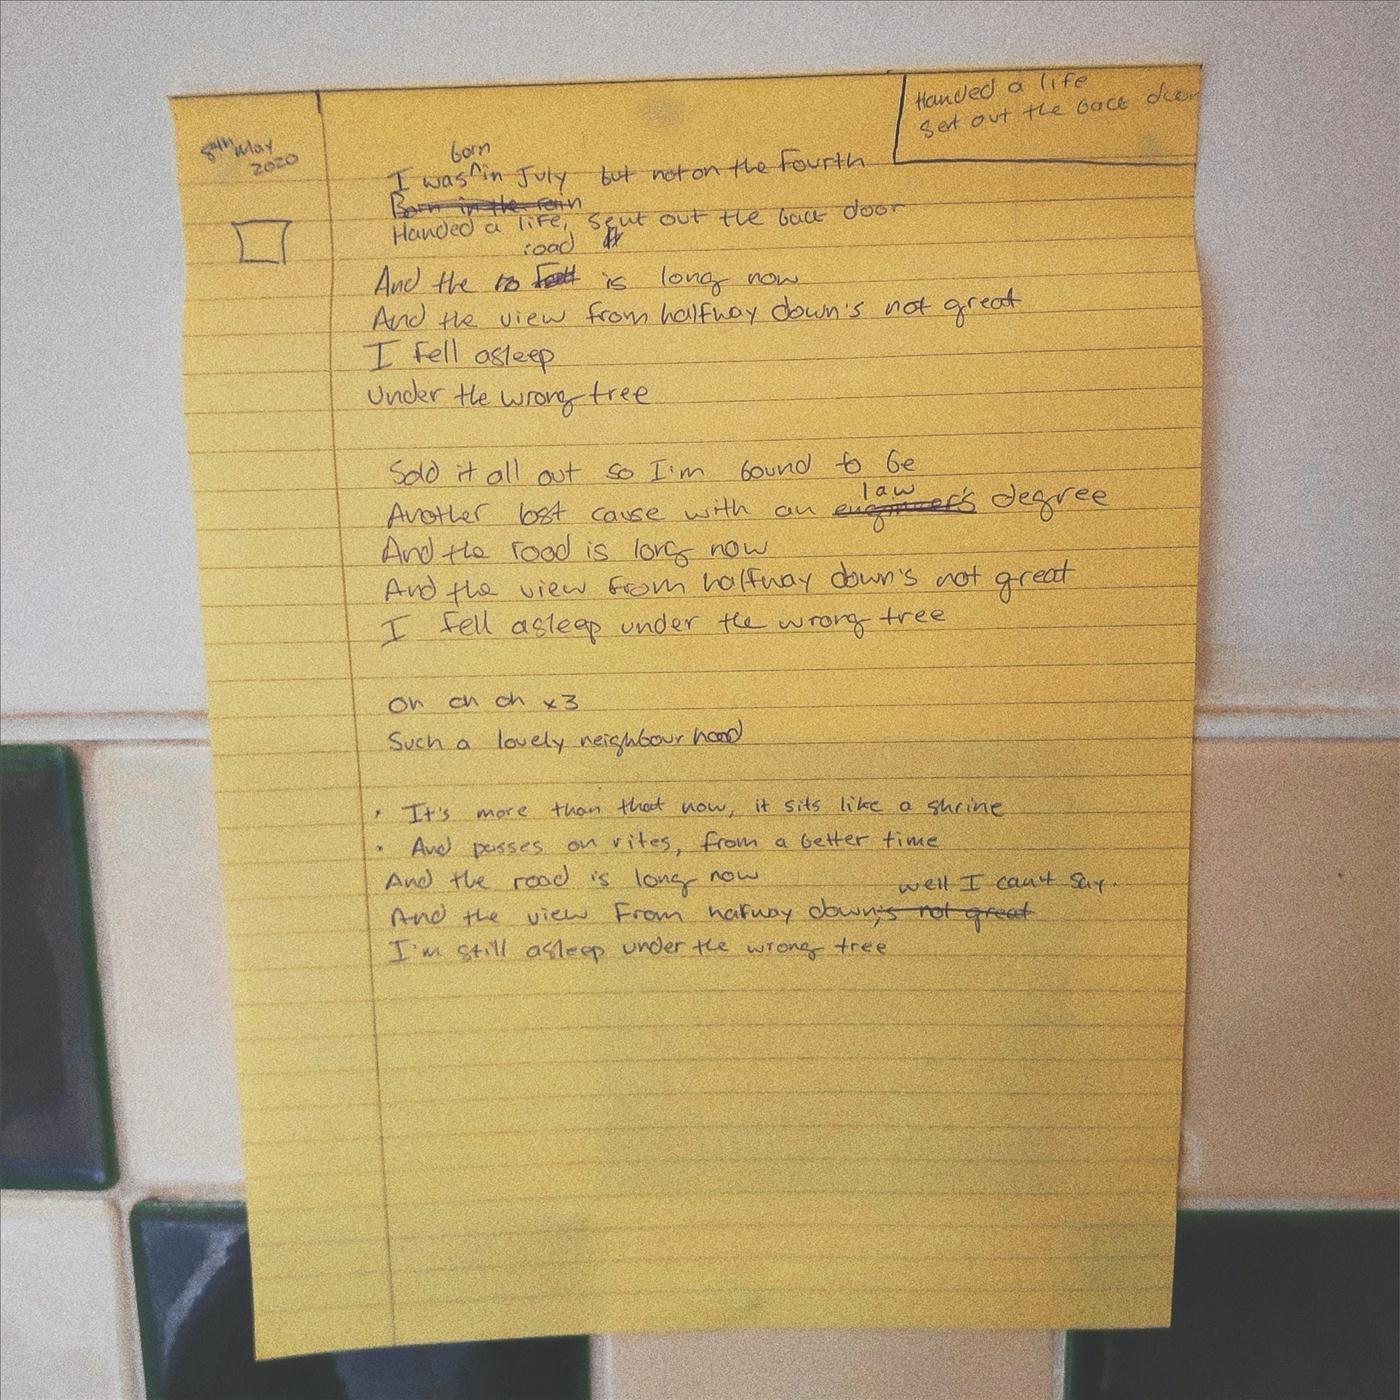 Handed a life
Sent out the back door
8th May
2020
born
I was^in July but not on the Fourth
Born in the rain
Handed a life, sent out the back door
road
And the to is long now
And the view from halfway down's not great
I fell asleep
Under the wrong tree
Sold it all out so I'm bound to be
law
Another lost cause with an engineer's degree
And the road is long now
And the view from halfway down's not great
I fell asleep under the wrong tree
Oh oh oh x3
Such a lovely neighbourhood
• It's more than that now, it sits like a shrine
• And passes on rites, from a better time
And the road is long now
well I can't say.
And the view From hafway down,'s not great
I'm still asleep under the wrong tree